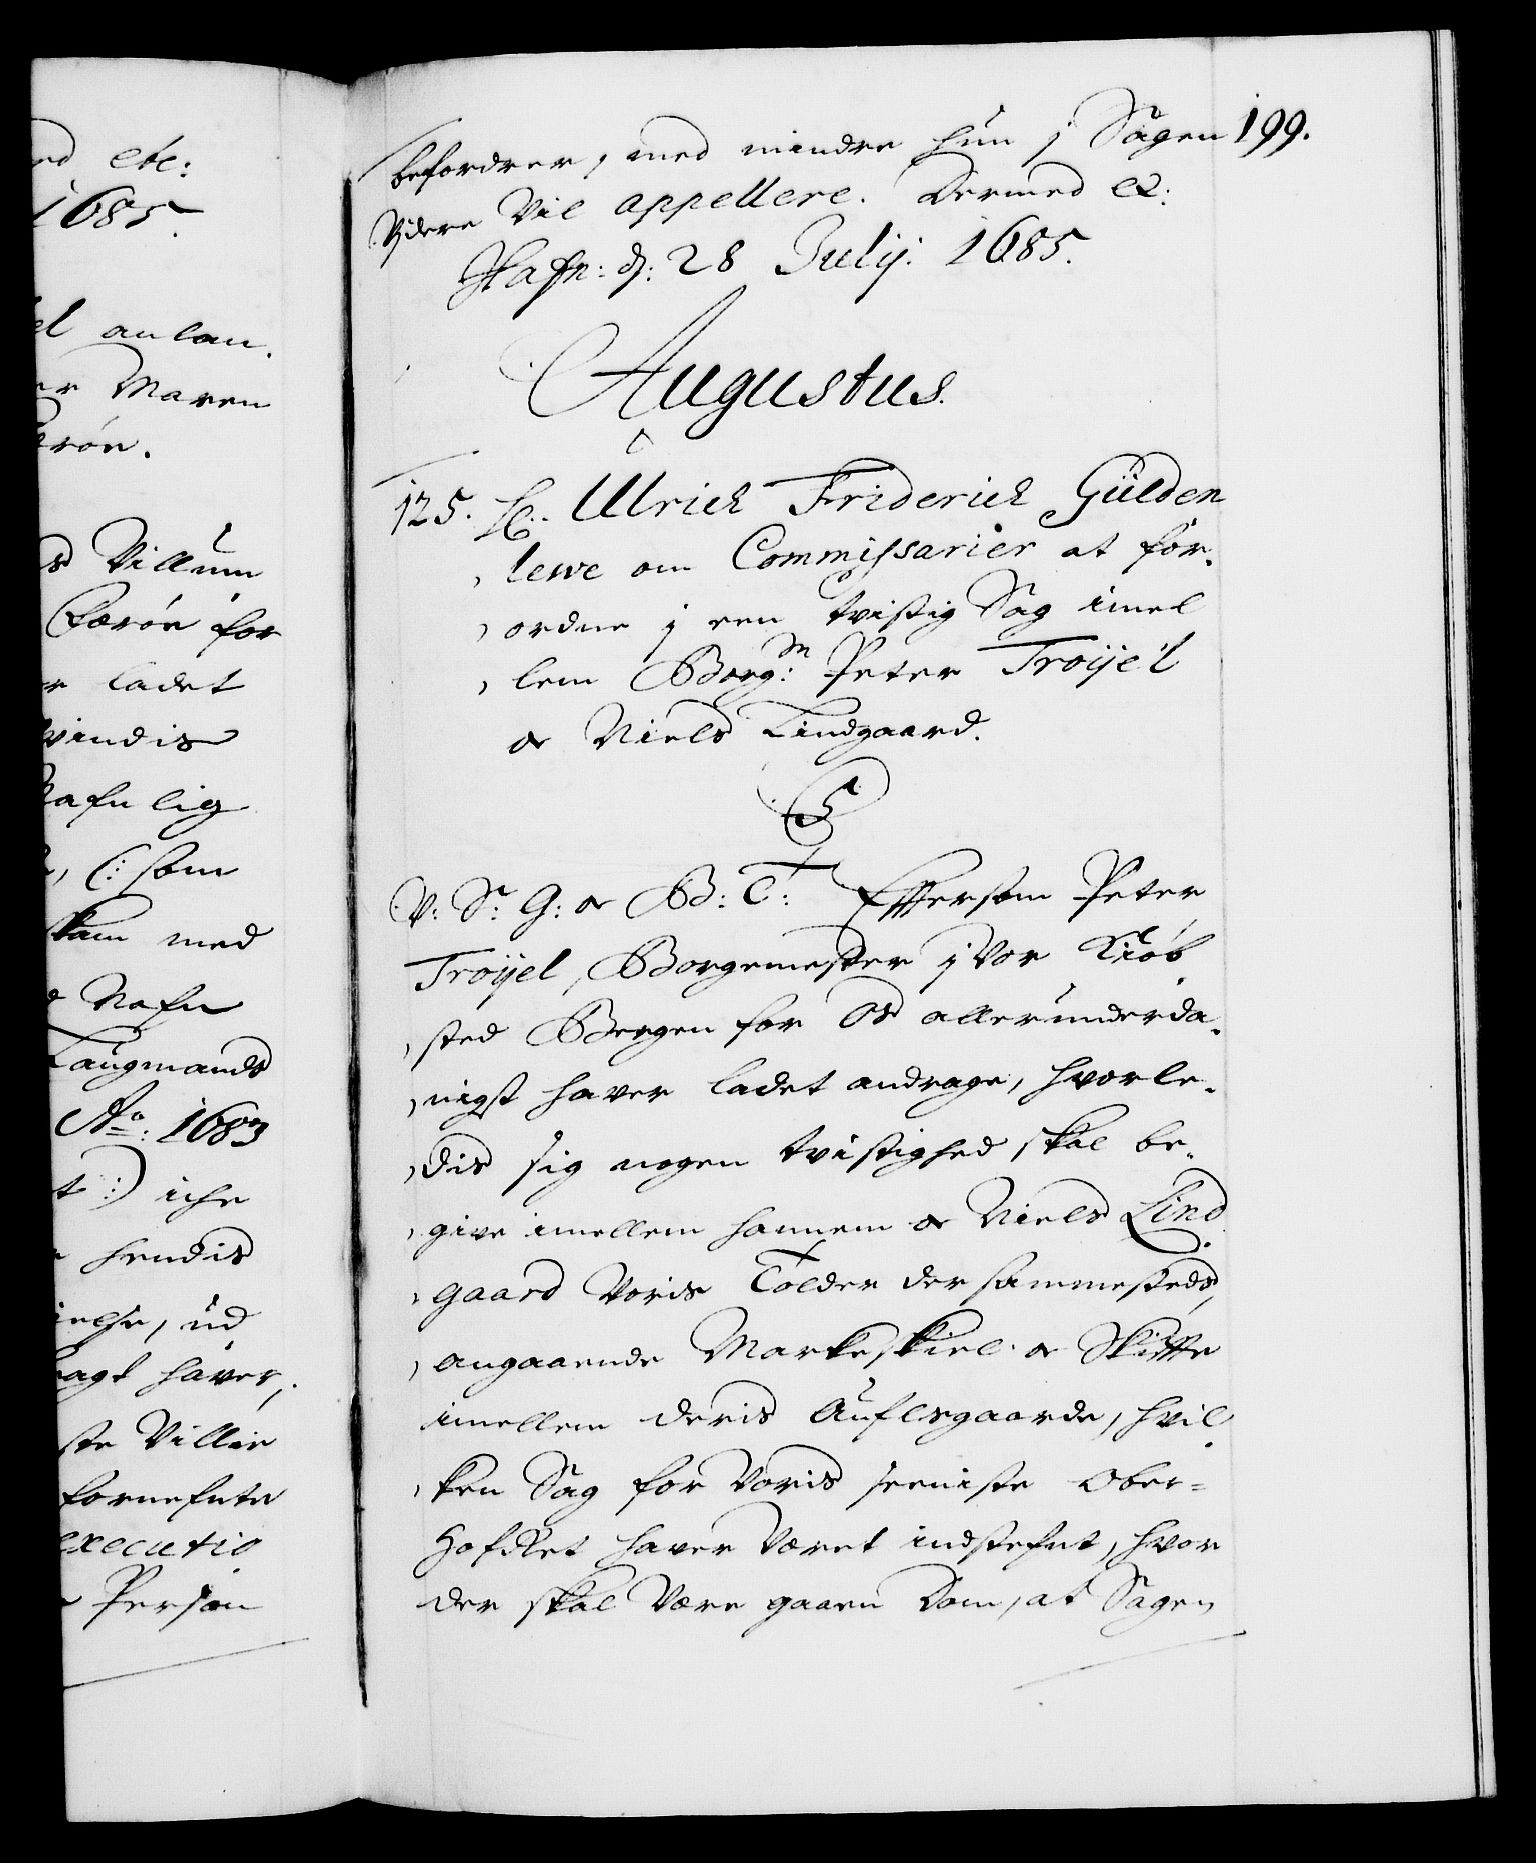 ed etc:
1685.
el anlan.
er Maren
erön.
ds Villum
Færöe for
er ladet
vindis
Nafnlig
, (: som
skam med
Nafn
Laugmands
Ao: 1683
t :) iche
hendis
ielse, ud
bragt haver,
ste Villie
fornefnte
executio
Persohn
befordrer, med mindre hun j Sagen 199.
Videre Vil appellere. Dermed etc:
Hafn: d: 28 Julij: 1685.
Augustus.
125. H: Ulrich Friderich Gülden
lewe om Commissarier at for-
ordne j een tvistig Sag imel
lem Borgm: Peter Troijel
oc Niels Lindgaard.
C5
V: S: G: oc B: T: Effersom Peter
Troijel, Borgemester j Vor Kiøb
sted Bergen for Os allerunderda-
nigst haver ladet andrage, hvorle-
dis sig nogen tvistighed skal be-
give imellem hannem oc Niels Lind
gaard Voris Tolder der sammesteds,
angaaende Markeskiel oc Skiffte
imellem deris Auflsgaarde, hvil
ken Sag for Voris seeniste Ober-
HofRet haver Været indstefnt, hvor
der skal Være gaaen Dom, at Sagen